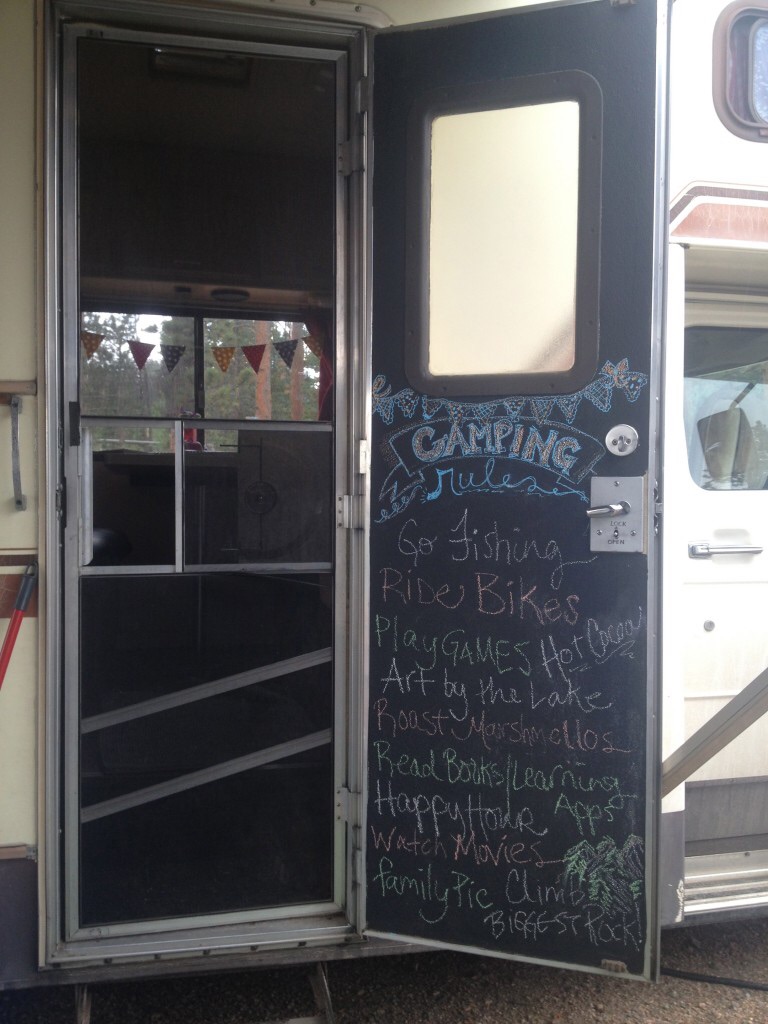 CAMPING
rules
LOCK
OPEN
Go Fishing
Ride Bikes
Play GAMES Hot Cocoa
Art by the Lake
Roast Marshmollos
Read Books/Learning
Apps
Happy Hour
Watch Movies
family Pic Climb
BIGGEST Rock!